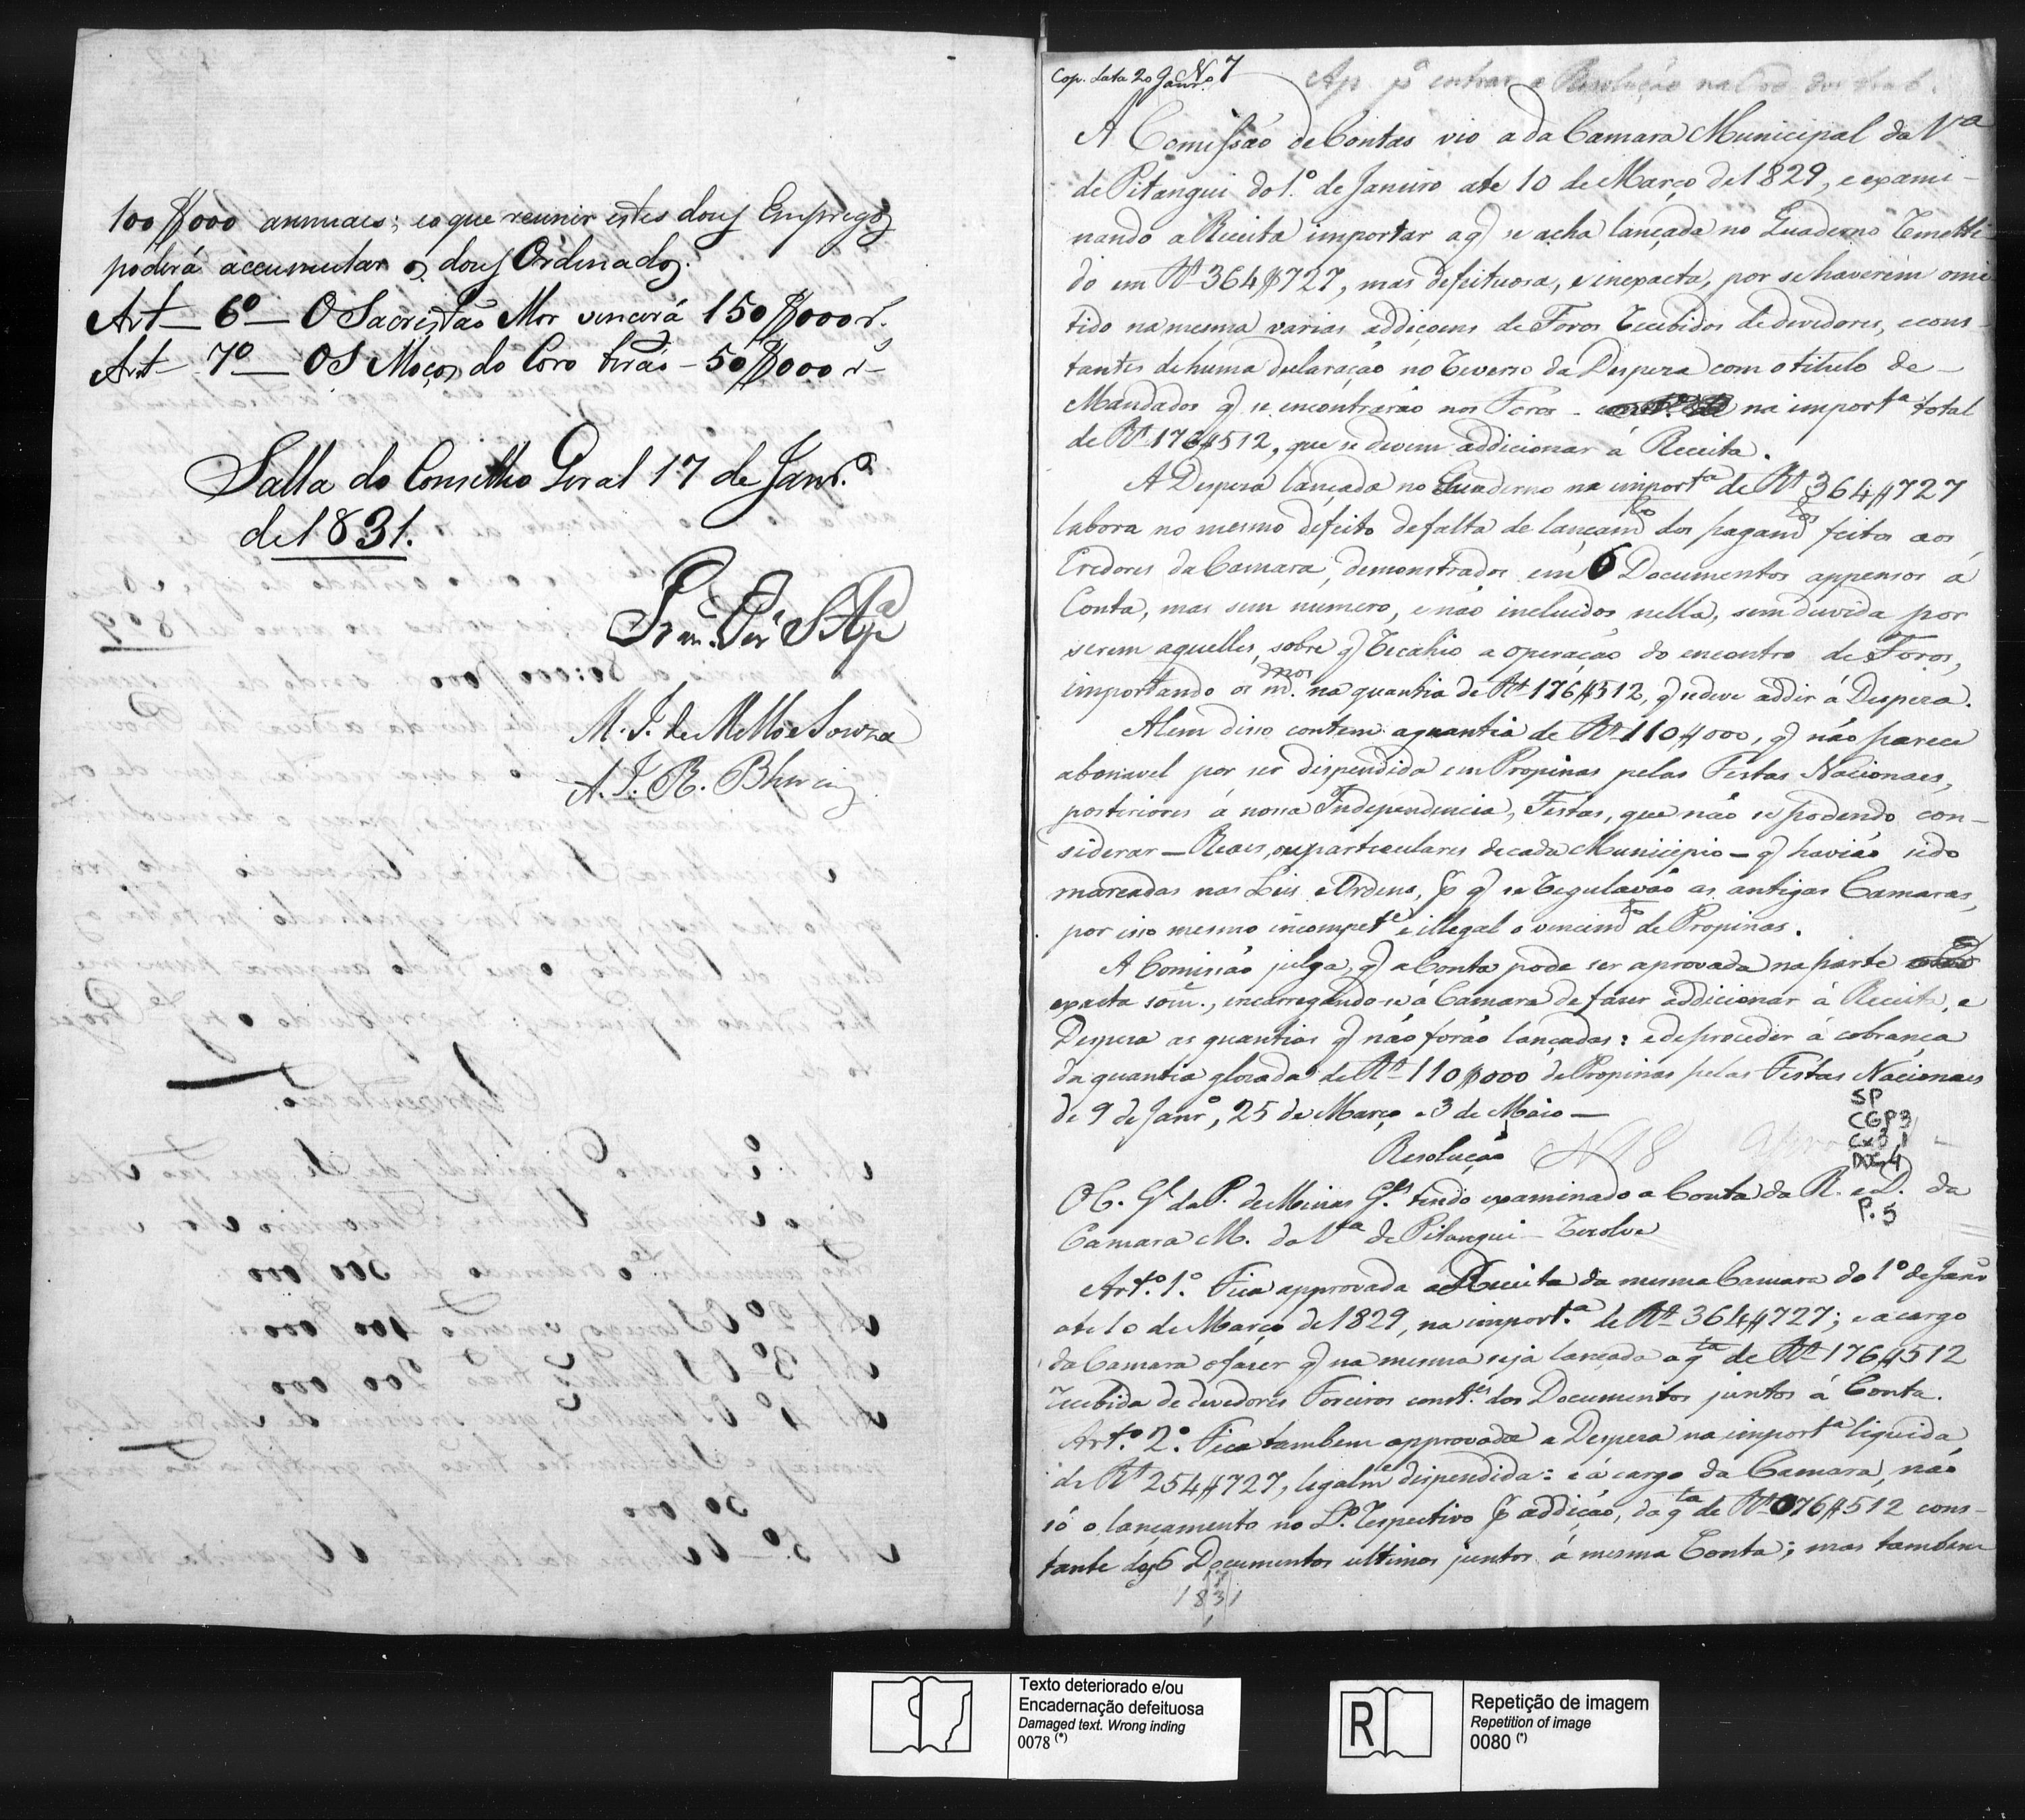 100$000 annuaes; e o que reunir estes dous Empregos
poderá accumular os dous Ordenados.
Art_ 6º_ O Sacristão Mor vencerá 150$000 r.
Art_ 7º_ OS Moços do Coro terão_50$000 r_
Salla do Conselho Geral 17 de Janrº
de 1831.
M. I. de Mello e Souza
A. J. R. Bhering
Cop. data 20 Janrº Nº 7
Ap. pª entrar a Resolução na Ord. dos trab.
A Comissão de Contas vio a da Camara Municipal da Vª
de Pitangui do 1º de Janeiro ate 10 de Março de 1829, e exami-
nando a Receita importar a q̃ se acha lançada no Quaderno remetti-
do em Rs 364$727, mas defeituosa, e inexacta, por se haverem omit-
tido na mesma varias addiçoens de Foros recebidos de devedores, e cons-
tantes de huma declaração no reverso da Despeza com o titulo de_
Mandados q̃ se encontrarão nos Foros_ na importª total
de Rs 176$512, que se devem addicionar á Receita.
A Despeza lançada no Quaderno na importª de Rs 364$727
labora no mesmo defeito de falta de lançamto dos pagamtos feitos aos
Credores da Camara, demonstrados em 6 Documentos appensos á
Conta, mas sem numero, e não incluidos nella, sem duvida por
serem aquelles, sobre q̃ recahio a operação do encontro de Foros,
importando os mmos na quantia de Rs 176$512, q̃ se deve addir á Despeza.
Alem disso contem a quantia de Rs 110$000, q̃ não parece
abonavel por ser dispendida em Propinas pelas Festas Nacionaes,
posteriores á nossa Independencia, Festas, que não se podendo con-
siderar_Reaes, ou particulares de cada Municipio_q̃ havião sido
marcadas nas Leis e Ordens, pr q̃ se regulavão as antigas Camaras,
por isso mesmo incompete e illegal o vencimto de Propinas.
A Comissão julga, q̃ a Conta pode ser aprovada na parte
exacta some, encarregando-se á Camara de fazer addicionar á Receita, e
Despeza as quantias q̃ não forão lançadas: e de proceder á cobrança
da quantia glosada de Rs 110$000 de Propinas pelas Festas Nacionaes
de 9 de Janrº, 25 de Março e 3 de Maio_
SP
CGP3
Cx31
DOC4
P.5
Resolução Nº 98
O C. Gl da P. de Minas Gs tendo examinado a Conta da R. e D. da
Camara M. da Vª de Pitangui_ resolve
Artº 1º. Fica approvada a Receita da mesma Camara do 1º de Janrº
ate 10 de Março de 1829, na importª de Rs 364$727; e a cargo
da Camara o fazer q̃ na mesma seja lançada a qta de Rs 176$512
recebida de devedores Foreiros constes dos Documentos juntos á Conta.
Artº 2º. Fica tambem approvada a Despeza na importª liquida
de Rs 254$727, legalme dispendida: e á cargo da Camara, não
só o lançamento no Lº respectivo pr addição, da qta de Rs 176$512 cons-
tante dos 6 Documentos ultimos juntos á mesma Conta; mas tambem
1831
Texto deteriorado e/ou
Encadernação defeituosa
Damaged text. Wrong inding
0078 (*)
R
Repetição de imagem
Repetition of image
0080 (*)